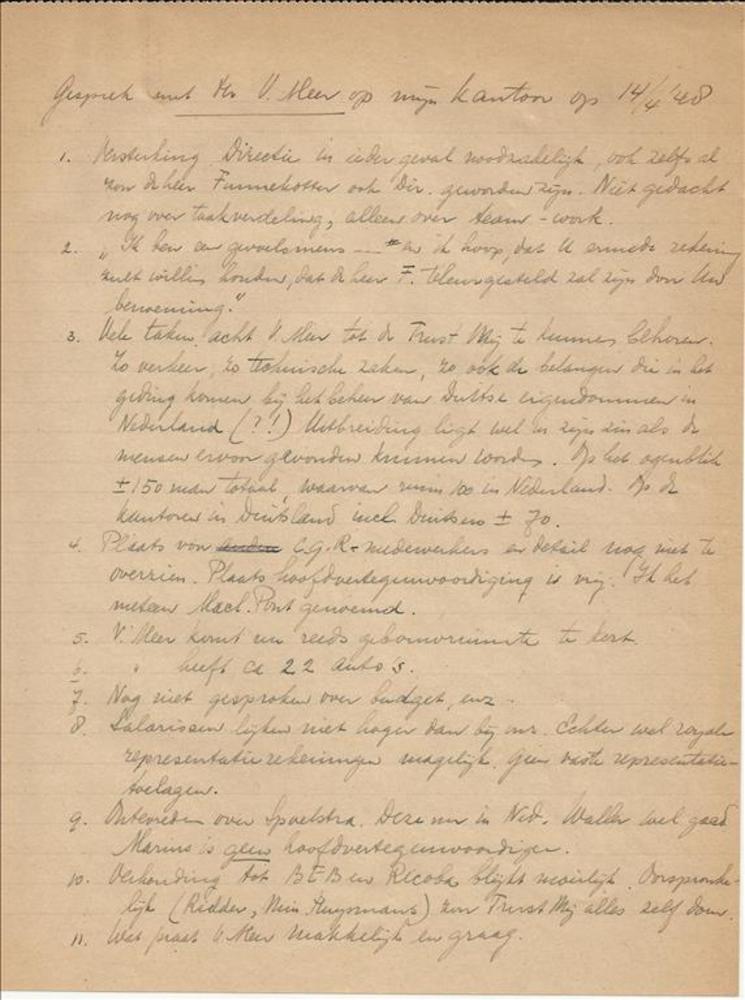 Gesprek met Hr V. Meer op mijn kantoor op 14/4 '48
1. Versterking Directie in ieder geval noodzakelijk, ook zelfs al
zou de heer Funnekotter ook Dir. geworden zijn. Niet gedacht
nog over taakverdeling, alleen over team-work.
2. „Ik ben een gevoelsmens en ik hoop, dat U ermede rekening
zult willen houden, dat de heer F. teleurgesteld zal zijn door Uw
benoeming."
3. Vele taken acht V. Meer tot de Trust Mij te kunnen behoren.
Zo verkeer, zo technische zaken, zo ook de belangen die in het
geding komen bij het beheer van Duitse eigendommen in
Nederland (?!) Uitbreiding ligt wel in zijn zin als de
mensen ervoor gevonden kunnen worden. Op het ogenblik
± 150 man totaal, waarvan ruim 100 in Nederland. Op de
kantoren in Duitsland incl. Duitsers ± 70.
4. Plaats von C.G.R-medewerkers en detail nog niet te
overzien. Plaats hoofdvertegenwoordiging is vrij. Ik heb
meteen Macl. Pont genoemd.
5. V. Meer komt nu reeds gebouwruimte te kort.
6. " heeft ca 22 auto's.
7. Nog niet gesproken over budget, enz.
8. Salarissen lijken niet hoger dan bij ons. Echter wel royale
representatierekeningen mogelijk. Geen vaste representatie-
toelagen.
9. Ontevreden over Spoelstra. Deze nu in Ned. Waller wel goed
Marius is geen hoofdvertegenwoordiger.
10. Verhouding tot BEB en Ricoba blijkt moeilijk. Oorspronke-
lijk (Ridder, Min. Huysmans) zou Trust Mij alles zelf doen.
11. Wat praat V. Meer makkelijk en graag.